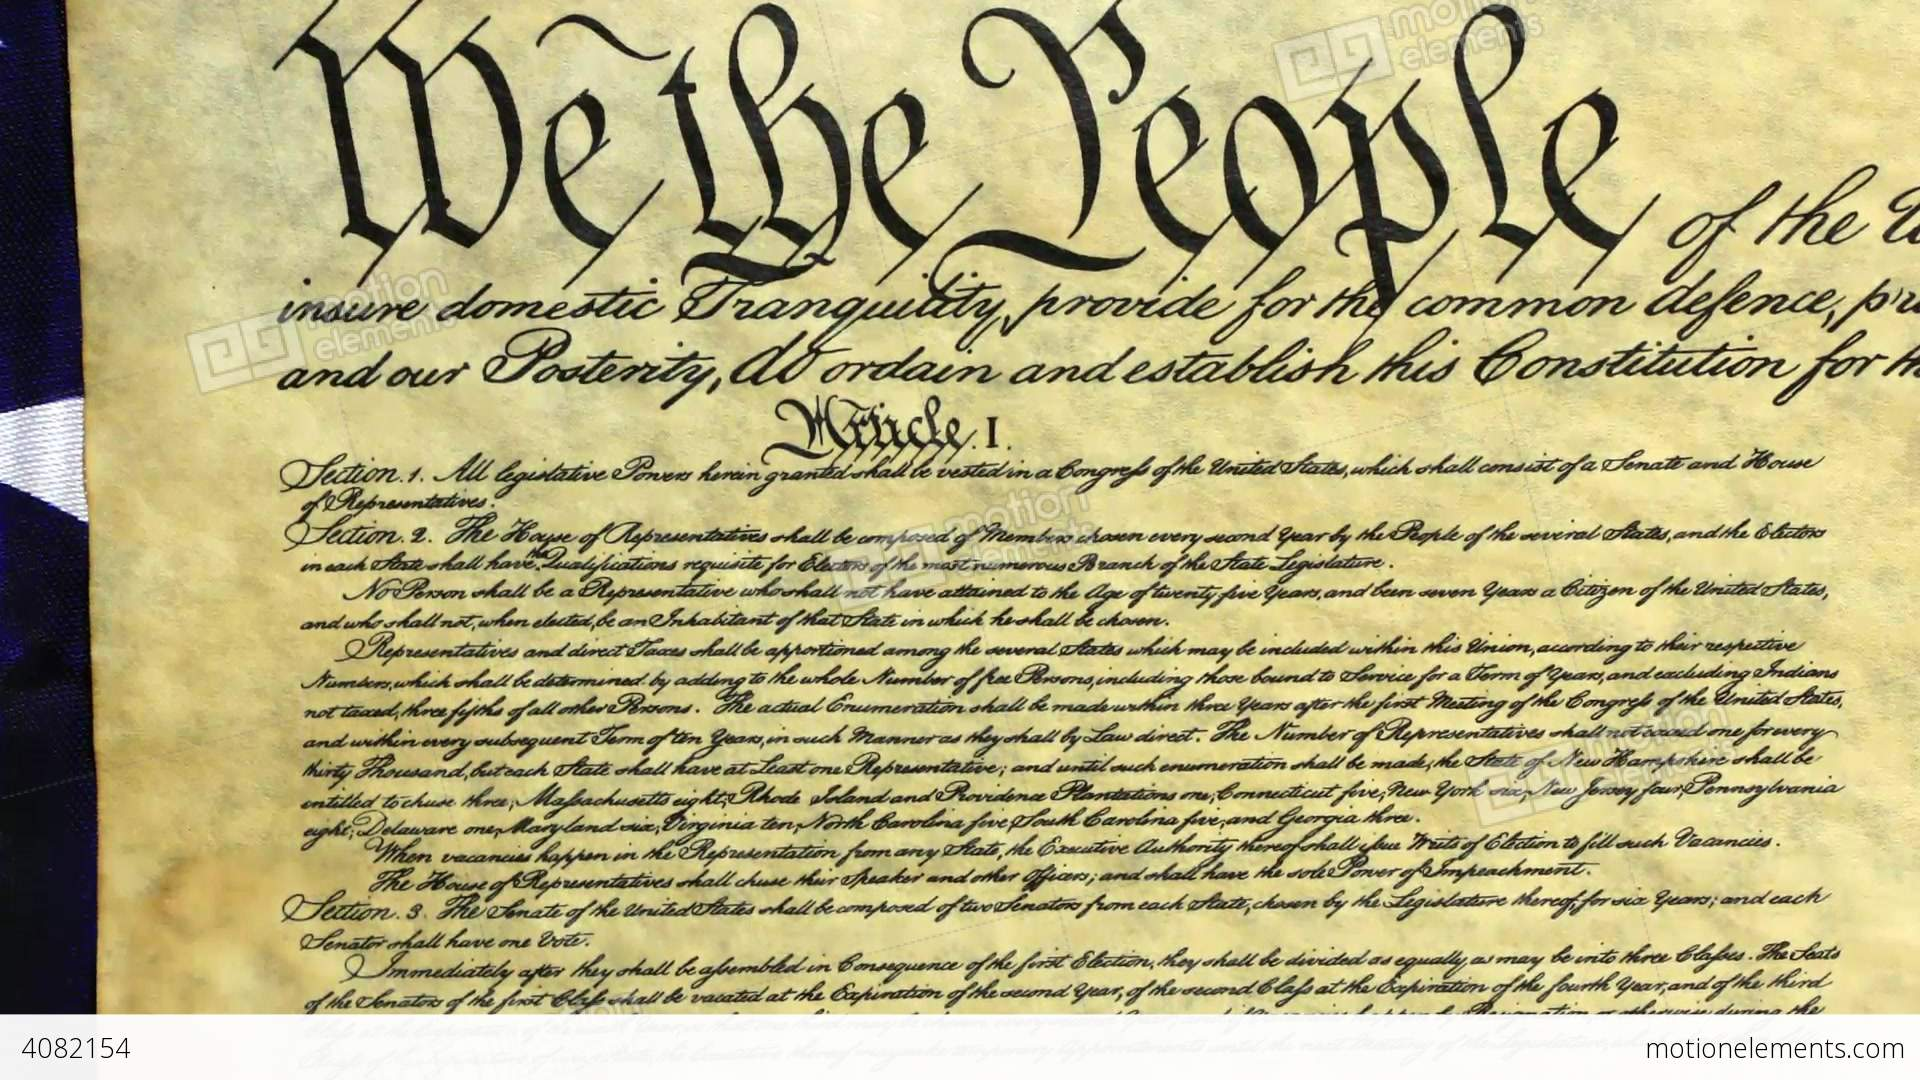 We the People of the U
insure domestic Tranquility, provide for the common defence, pro
and our Posterity, do ordain and establish this Constitution for th
Article. I.
Section. 1. All legislative Powers herein granted shall be vested in a Congress of the United States, which shall consist of a Senate and House
of Representatives.
Section. 2. The House of Representatives shall be composed of Members chosen every second Year by the People of the several States, and the Electors
in each State shall have the Qualifications requisite for Electors of the most numerous Branch of the State Legislature.
No Person shall be a Representative who shall not have attained to the Age of twenty five Years, and been seven Years a Citizen of the United States,
and who shall not, when elected, be an Inhabitant of that State in which he shall be chosen.
Representatives and direct Taxes shall be apportioned among the several States which may be included within this Union, according to their respective
Numbers, which shall be determined by adding to the whole Number of free Persons, including those bound to Service for a Term of Years, and excluding Indians
not taxed, three fifths of all other Persons. The actual Enumeration shall be made within three Years after the first Meeting of the Congress of the United States,
and within every subsequent Term of ten Years, in such Manner as they shall by Law direct. The Number of Representatives shall not exceed one for every
thirty Thousand, but each State shall have at Least one Representative; and until such enumeration shall be made, the State of New Hampshire shall be
entitled to chuse three, Massachusetts eight, Rhode Island and Providence Plantations one, Connecticut five, New York six, New Jersey four, Pennsylvania
eight, Delaware one, Maryland six, Virginia ten, North Carolina five, South Carolina five, and Georgia three.
When vacancies happen in the Representation from any State, the Executive Authority thereof shall issue Writs of Election to fill such Vacancies.
The House of Representatives shall chuse their Speaker and other Officers; and shall have the sole Power of Impeachment.
Section. 3. The Senate of the United States shall be composed of two Senators from each State, chosen by the Legislature thereof, for six Years; and each
Senator shall have one Vote.
Immediately after they shall be assembled in Consequence of the first Election, they shall be divided as equally as may be into three Classes. The Seats
of the Senators of the first Class shall be vacated at the Expiration of the second Year, of the second Class at the Expiration of the fourth Year, and of the third
Resignation, or otherwise, during the
motion elements
motion elements
motion elements
motion elements
4082154
motionelements.com